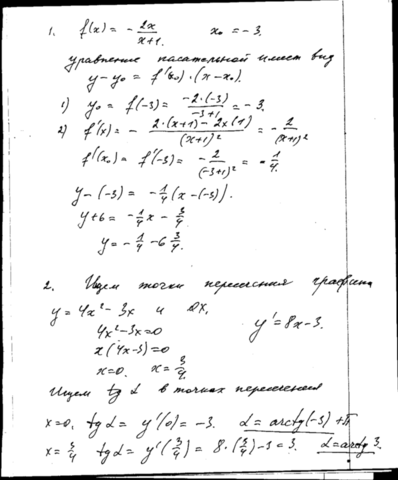 1. f(x) = - 2x/(x+1) x₀ = -3.
уравнение касательной имеет вид
y-y₀ = f'(x₀)·(x-x₀).
1) y₀ = f(-3) = -2·(-3)/(-3+1) = -3.
2) f'(x) = - (2·(x+1) - 2x(1))/(x+1)² = - 2/(x+1)²
f'(x₀) = f'(-3) = - 2/(-3+1)² = - 1/4.
y-(-3) = - 1/4 (x-(-3)).
y+6 = - 1/4 x - 3/4
y = - 1/4 - 6 3/4
2. Ищем точки пересечения графика
y = 4x² - 3x и OX,
4x² - 3x = 0 y' = 8x - 3.
x(4x-3) = 0
x = 0. x = 3/4
Ищем tg α в точках пересечения
x = 0, tg α = y'(0) = -3. α = arctg(-3) + π
x = 3/4 tg α = y'(3/4) = 8·(3/4) - 3 = 3. α = arctg 3.